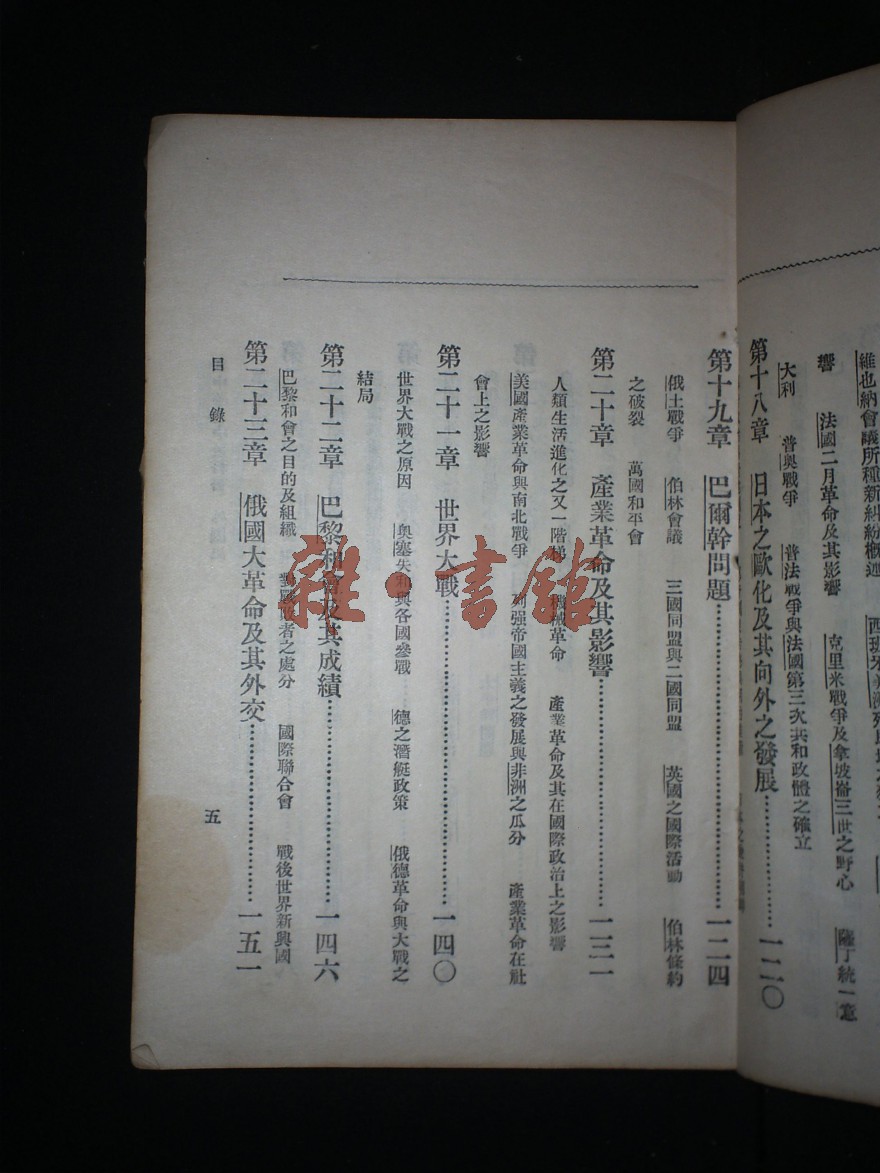 維也納會議所種新糾紛概述
響　法國二月革命及其影響　克里米戰爭及拿坡崙三世之野心　薩丁統一意
大利　普奧戰爭　普法戰爭與法國第三次共和政體之確立
第十八章　日本之歐化及其向外之發展……一二〇
第十九章　巴爾幹問題……一二四
俄土戰爭　伯林會議　三國同盟與二國同盟　英國之國際活動　伯林條約
之破裂　萬國和平會
第二十章　產業革命及其影響……一三一
人類生活進化之又一階梯　機械革命　產業革命及其在國際政治上之影響
美國產業革命與南北戰爭　列强帝國主義之發展與非洲之瓜分　產業革命在社
會上之影響
第二十一章　世界大戰……一四〇
世界大戰之原因　奧塞失和與各國參戰　德之潛艇政策　俄德革命與大戰之
結局
第二十二章　巴黎和會及其成績……一四六
巴黎和會之目的及組織　對戰敗者之處分　國際聯合會　戰後世界新興國
第二十三章　俄國大革命及其外交……一五一
目錄
五
雜·書館